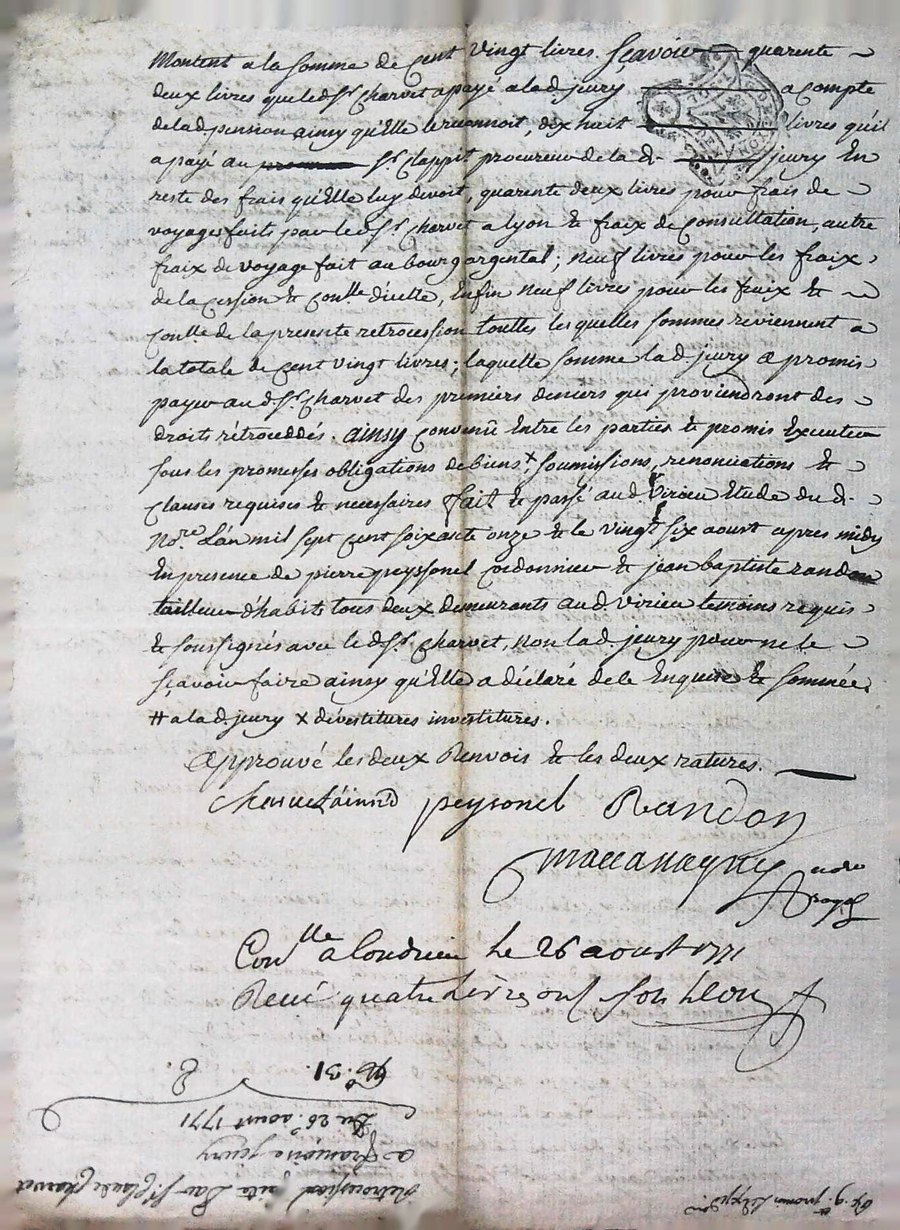 Montent a la somme de cent vingt livres. Sçavoir quarente
deux livres que led. Sr. Charvet a payé a lad. jeury a compte
de lad. pension ainsy qu'Elle le reconnoit, dix huit livres qu'il
a payé au Sr. Clapprt procureur de la d. jeury En
reste des frais qu'Elle luy devoit, quarente deux livres pour frais de
voyages faits par le d. Sr. Charvet a lyon & fraix de Consultation, autre
fraix de voyage fait au bourgargental; neuf livres pour les fraix
de la cession & Conlle d'icelle, Enfin neuf livres pour les fraix &
Conlle de la presente retrocession touttes lesquelles sommes reviennent a
la totale de Cent vingt livres; laquelle somme lad. jeury a promis
payer aud. Sr. Charvet des premiers deniers qui proviendront des
droits rétroceddés. ainsy convenû Entre les parties & promis Executer
sous les promesses obligations de biens, x soumissions, renonciations &
clauses requises & necessaires fait & passé aud. Virieu Etude du d.
Nore. L'an mil sept cent soixante onze & le vingt six aoust apres midy
En presence de pierre peyssonel Cordonnier & jean baptiste randon
tailleur d'habits tous deux demeurants aud. Virieu temoins requis
& soussignés avec le d. Sr. Charvet, non lad. jeury pour ne le
sçavoir faire ainsy qu'Elle a déclaré de le Enquise & Sommée.
# a la d. jeury x dévestitures investitures.
Approuvé les deux Renvois & les deux ratures.
Charvet l'ainé peyssonel Randon
Maccanagny
royal
Conlle a Condrieu le 26 aoust 1771
Reçu quatre livres
No. 31.
Du 26. aoust 1771
a françoise jeury
Retrocession faite Par Sr. Claude Charvet